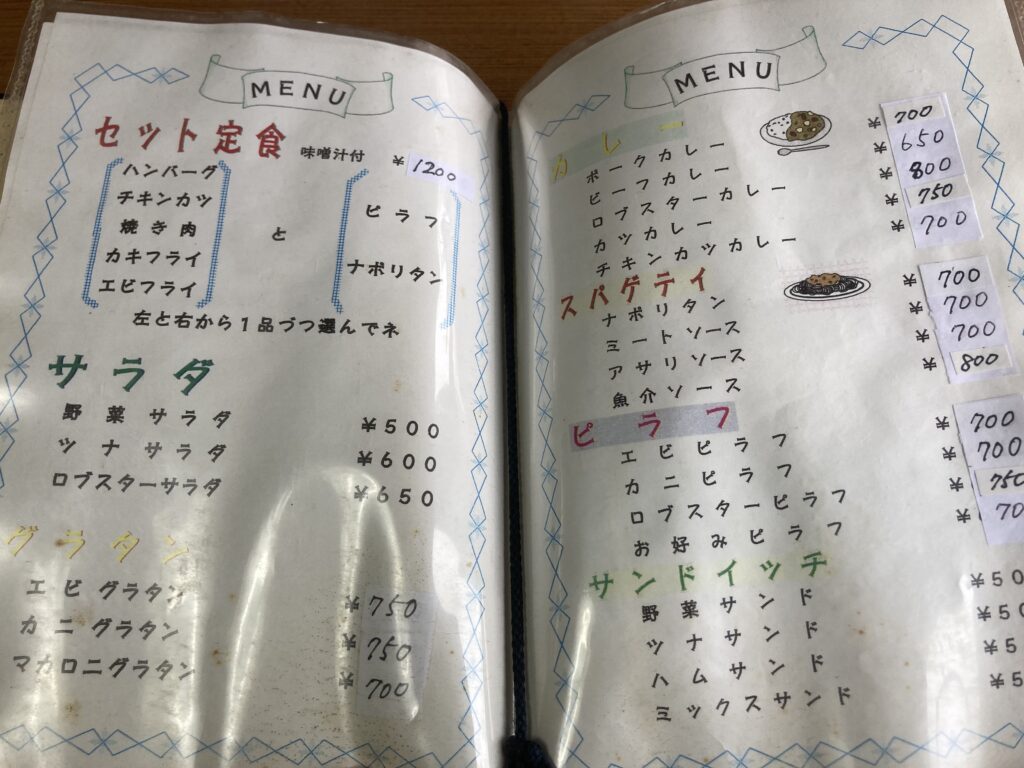 MENU
セット定食 味噌汁付 ¥1200
ハンバーグ
チキンカツ
焼き肉
カキフライ
エビフライ
と
ピラフ
ナポリタン
左と右から1品づつ選んでネ
サラダ
野菜サラダ ¥500
ツナサラダ ¥600
ロブスターサラダ ¥650
グラタン
エビグラタン ¥750
カニグラタン ¥750
マカロニグラタン ¥700
MENU
カレー
ポークカレー ¥700
ビーフカレー ¥650
ロブスターカレー ¥800
カツカレー ¥750
チキンカツカレー ¥700
スパゲティ
ナポリタン ¥700
ミートソース ¥700
アサリソース ¥700
魚介ソース ¥800
ピラフ
エビピラフ ¥700
カニピラフ ¥700
ロブスターピラフ ¥750
お好みピラフ ¥70
サンドイッチ
野菜サンド ¥50
ツナサンド ¥50
ハムサンド ¥5
ミックスサンド ¥5